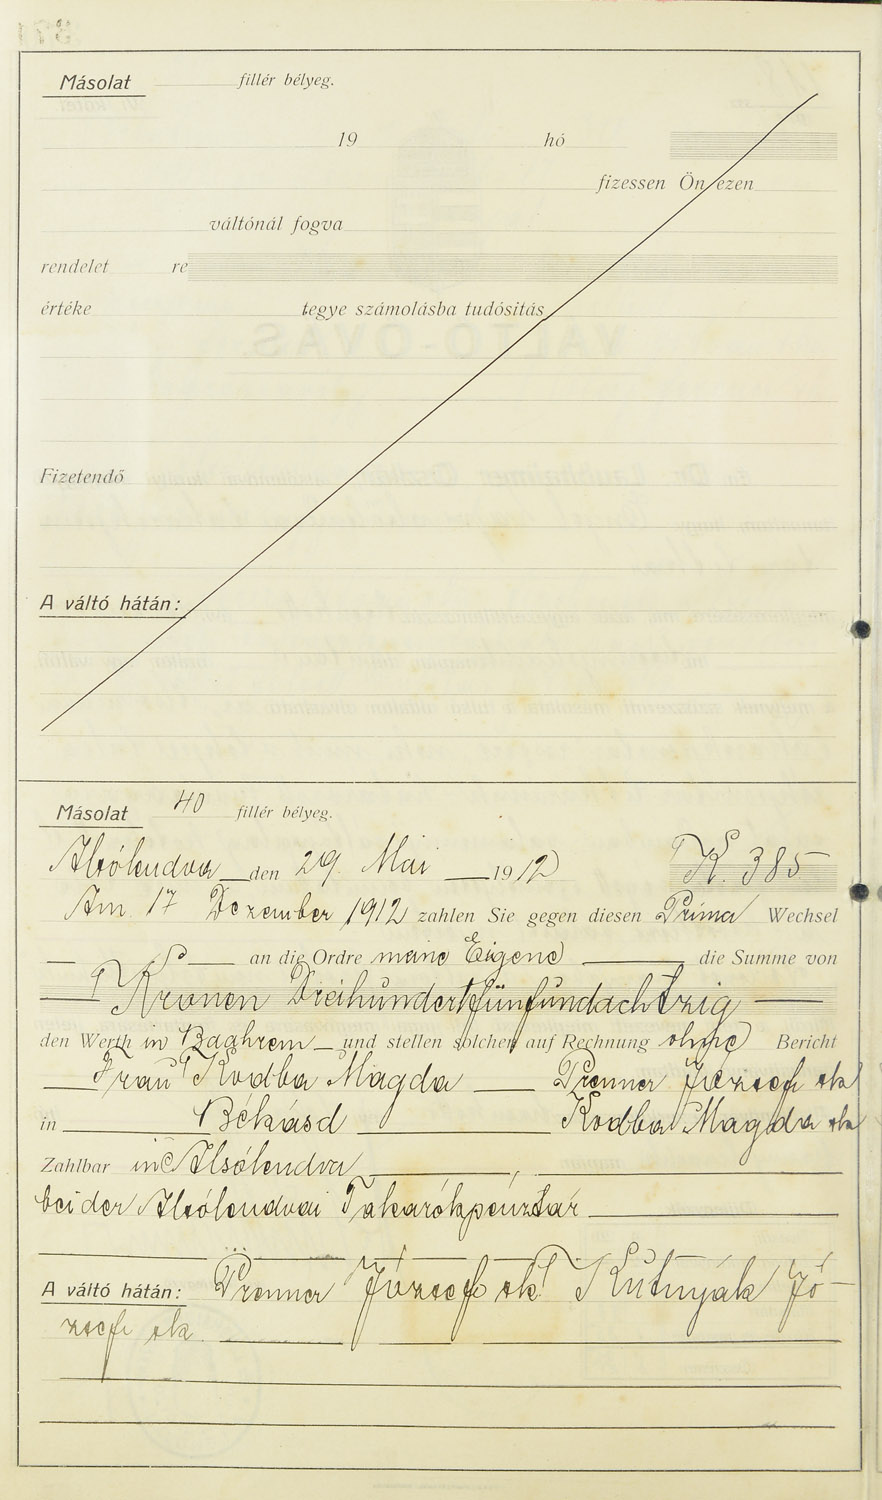 Másolat fillér bélyeg.
19 hó
fizessen Ön ezen
váltónál fogva
rendelet re
értéke tegye számolásba tudósitás
Fizetendő
A váltó hátán:
Másolat 40 fillér bélyeg.
Alsólendva den 29. Mai 1912 K. 385
Am 17 Dezember 1912 zahlen Sie gegen diesen Prima Wechsel
an die Ordre meine Eigene die Summe von
Kronen Dreihundertfünfundachtzig
den Werth in Baahrem und stellen solchen auf Rechnung ohne Bericht
Frau Kodba Magda Prenner József sk
in Békásd Kodba Magda sk
Zahlbar in Alsólendva,
bei der Alsólendvai Takarékpénztár
A váltó hátán: Prenner József sk Kutnyák Jó-
zsef sk.